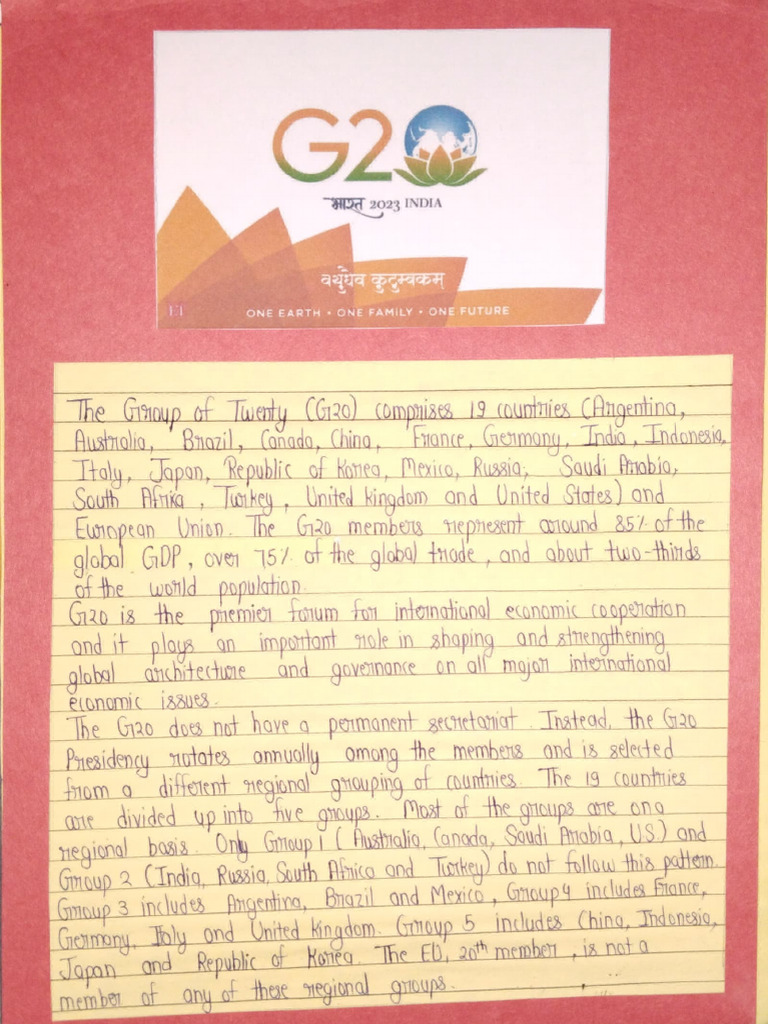 G20
भारत 2023 INDIA
वसुधैव कुटुम्बकम्
ONE EARTH • ONE FAMILY • ONE FUTURE
The Group of Twenty (G20) comprises 19 countries (Argentina,
Australia, Brazil, Canada, China, France, Germany, India, Indonesia,
Italy, Japan, Republic of Korea, Mexico, Russia, Saudi Arabia,
South Africa, Turkey, United kingdom and United States) and
European Union. The G20 members represent around 85% of the
global GDP, over 75% of the global trade, and about two-thirds
of the world population.
G20 is the premier forum for international economic cooperation
and it plays an important role in shaping and strengthening
global architecture and governance on all major international
economic issues.
The G20 does not have a permanent secretariat. Instead, the G20
Presidency rotates annually among the members and is selected
from a different regional grouping of countries. The 19 countries
are divided up into five groups. Most of the groups are on a
regional basis. Only Group 1 (Australia, Canada, Saudi Arabia, US) and
Group 2 (India, Russia, South Africa and Turkey) do not follow this pattern.
Group 3 includes Argentina, Brazil and Mexico, Group 4 includes France,
Germany, Italy and United Kingdom. Group 5 includes China, Indonesia,
Japan and Republic of Korea. The EU, 20th member, is not a
member of any of these regional groups.